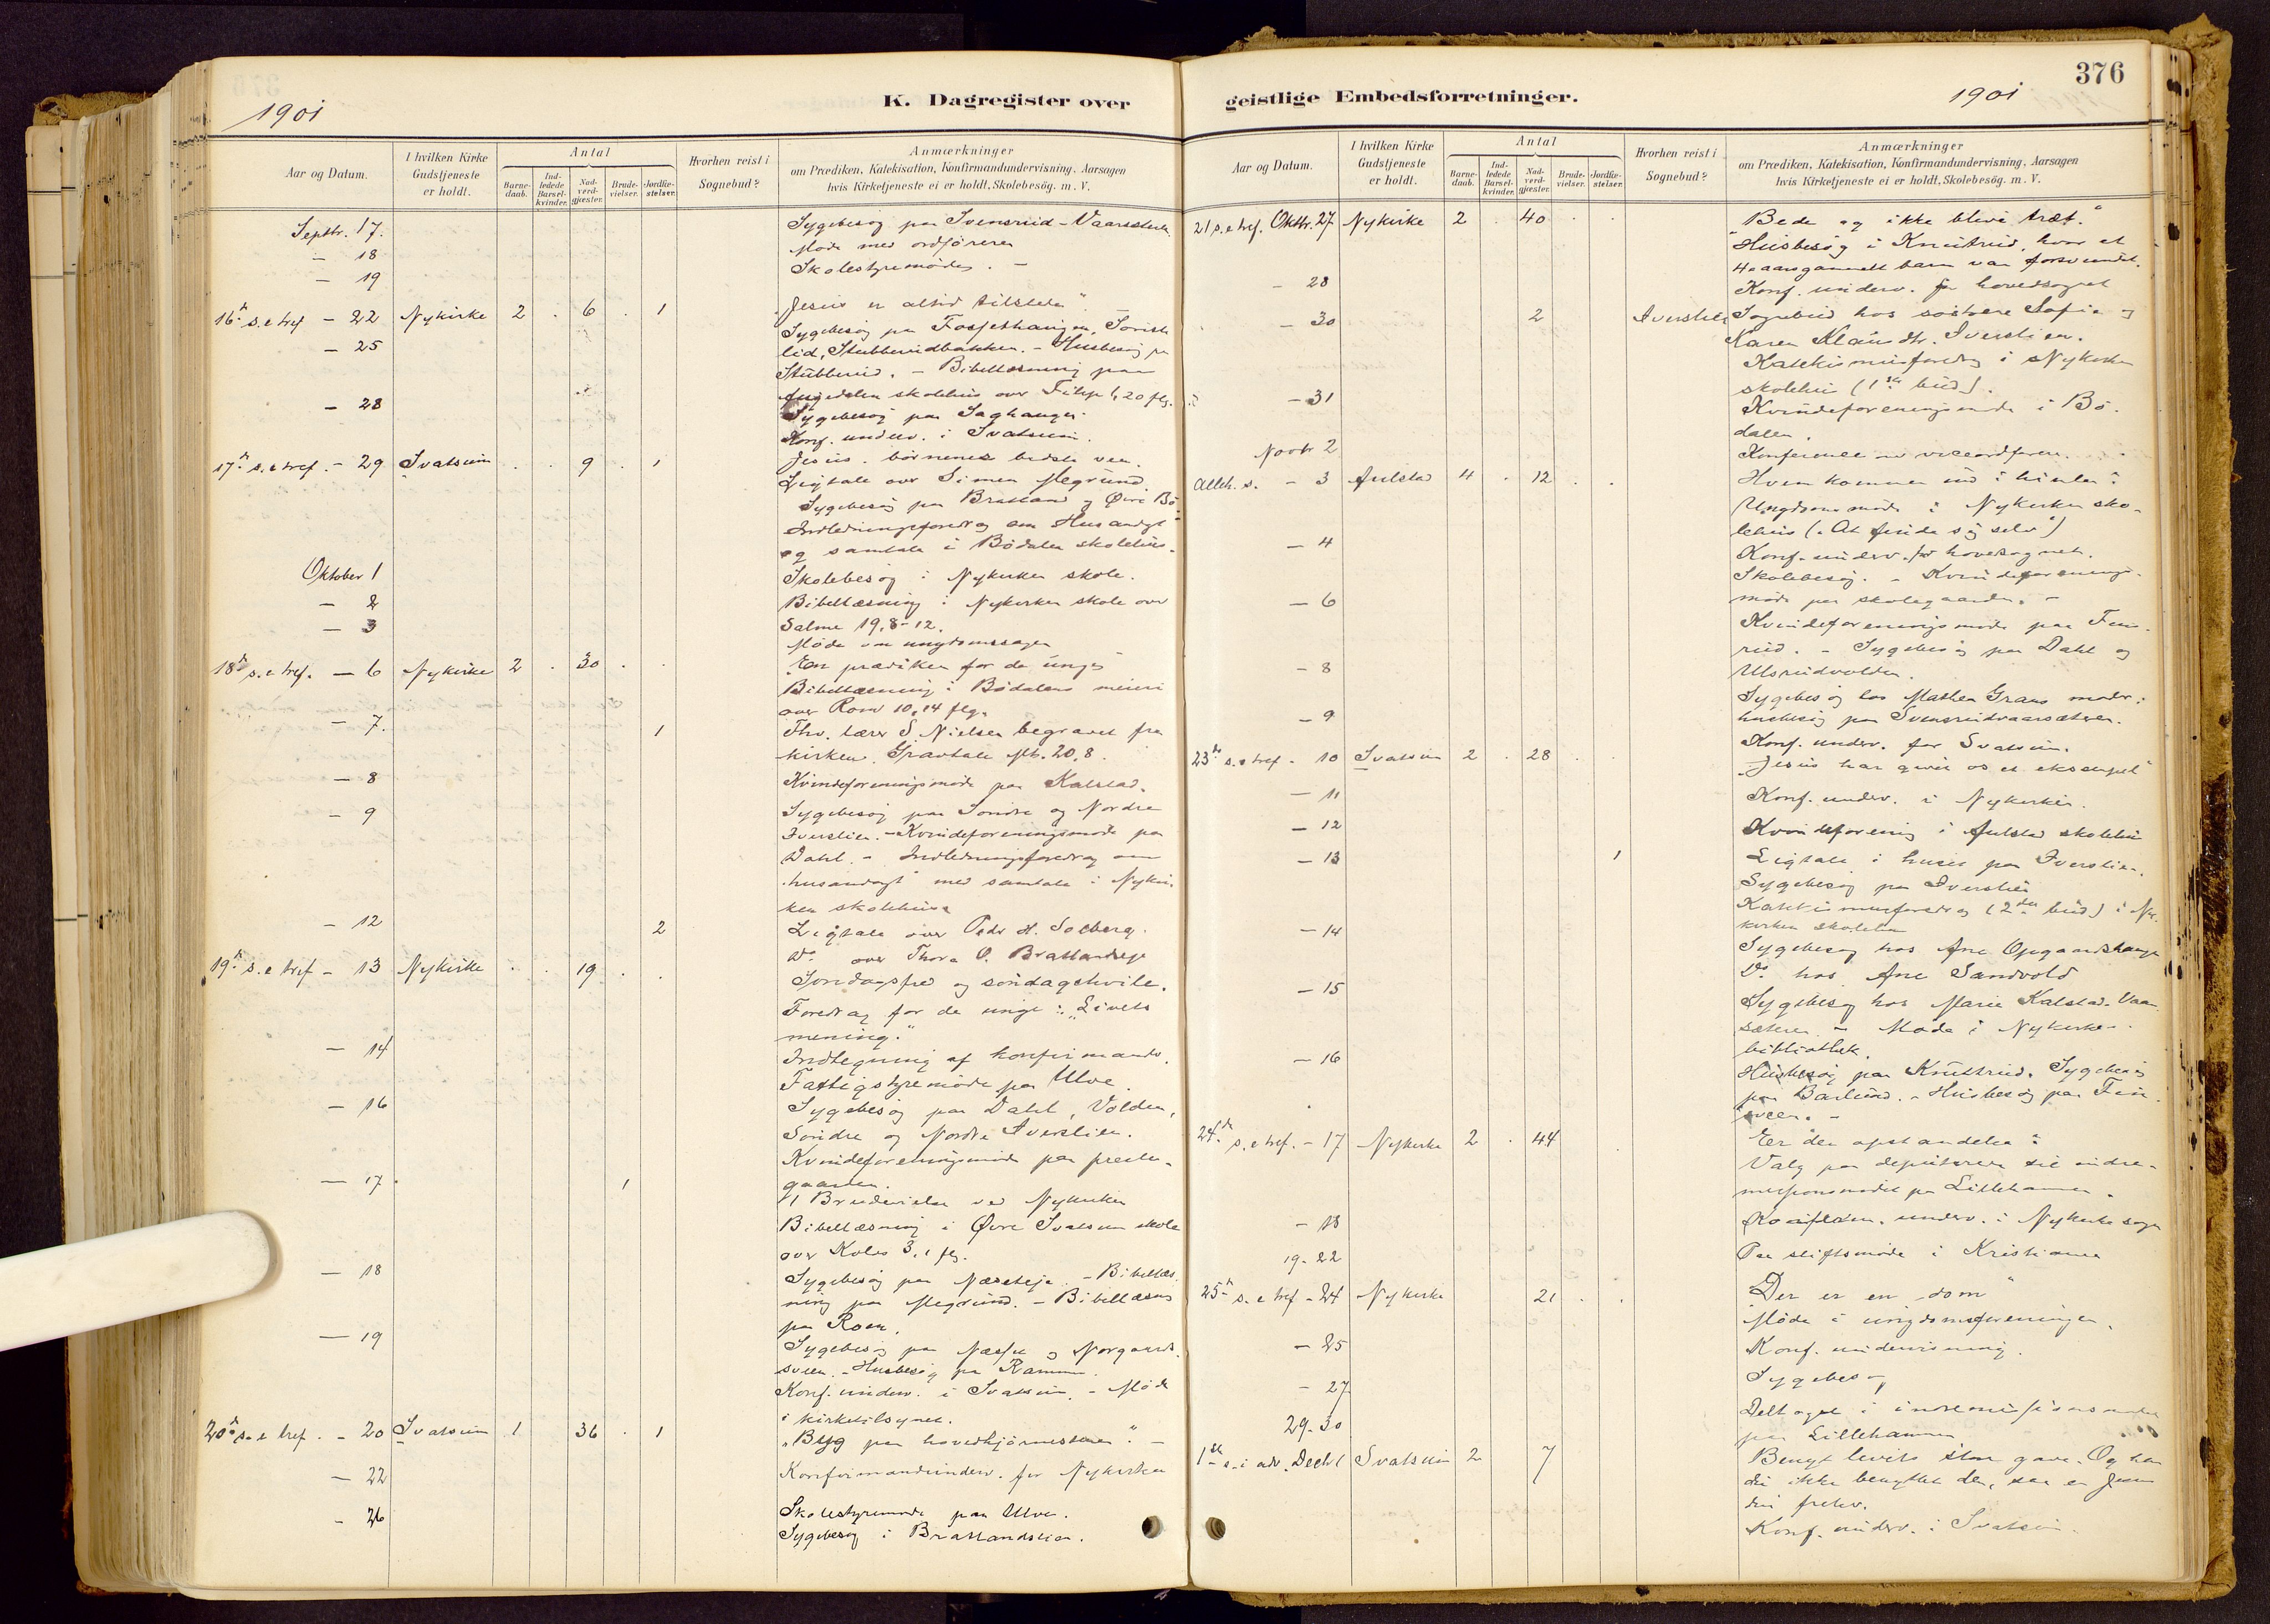 376
1901
K. Dagregister over
geistlige Embedsforretninger.
1901
Aar og Datum.
I hvilken Kirke Gudstjeneste er holdt.
Antal
Barnedaab.
Indledede Barselkvinder.
Nadverdgjæster.
Brudevielser.
Jordfæstelser.
Hvorhen reist i Sognebud?
Anmærkninger
om Prædiken, Katekisation, Konfirmandundervisning, Aarsagen
hvis Kirketjeneste ei er holdt, Skolebesøg. m. V.
Septbr. 17. Sygebesøg paa Svensrud-Vaarsæteren.
Møde med ordføreren
- 18 Skolestyremøde. -
- 19
16de s. e tref - 22 Nykirke 2 . 6 . 1 "Jesus er altid tilstede"
Sygebesøg paa
- 25 lid, Stubberudbakken. - Husbesøg paa
Stubberud. - Bibellæsning paa
skolehus over Filip 1, 20 flg.
- 28 Sygebesøg paa Saghaugen.
Konf. underv. i Svatsum.
17de s. e tref. - 29 Svatsum . . 9 . 1 Jesus. børnenes bedste ven.
Ligtale over Simen Megrund.
Sygebesøg paa Bratland og Øvre Bø
Indledningsforedrag om Husandagt
og samtale i Bødalen skolehus.
Oktober 1 Skolebesøg i Nykirken skole.
- 2 Bibellæsning i Nykirken skole over
- 3 Salme 19, 8-12.
Møde om ungdomssagen
18de s. e tref. - 6 Nykirke 2 . 30 . . "En prædiken for de unge"
Bibellæsning i Bødalens meieri
over Rom 10, 14 flg.
- 7. 1 Fhv. lærer S. Nielsen begravet fra
kirken. Gravtale Mt. 20, 8.
- 8 Kvindeforeningsmøde paa Kalstad.
- 9 Sygebesøg paa Søndre og Nordre
Iverslien. - Kvindeforeningsmøde paa
Dahl. - Indledningsforedrag om
"husandagt" med samtale i Nykir-
ken skolehus
- 12 2 Ligtale over Peder H. Solberg.
Do over Thora O. Bratlandseje
19de s. e tref - 13 Nykirke . . 19 . . Søndagsfred og søndagshvile.
Foredrag for de unge: "Livets
mening."
- 14 Indtegning af konfirmander.
Fattigstyremøde paa Ulve.
- 16 Sygebesøg paa Dahl, Volden,
Søndre og Nordre Iverslien.
Kvindeforeningsmøde paa preste-
gaarden.
- 17. 1 1 Brudevielse ved Nykirken
Bibellæsning i Øvre Svatsum skole
over Kolos 3, 1 flg.
- 18 Sygebesøg paa Næseteje. - Bibellæs
ning paa Megrund. - Bibellæsning
paa Roen.
- 19 Sygebesøg paa og Norgaards
sveen. - Husbesøg paa Rammen.
Konf. underv. i Svatsum. - Møde
i kirketilsynet.
20de s. e tref. - 20 Svatsum 1 36 . 1 "Byg paa hovedhjørnestenen". -
- 22 Konfirmandunderv. for Nykirken
- 26 Skolestyremøde paa Ulve.
Sygebesøg i Bratlandslien.
Aar og Datum.
I hvilken Kirke Gudstjeneste er holdt.
Antal
Barnedaab.
Indledede Barselkvinder.
Nadverdgjæster.
Brudevielser.
Jordfæstelser.
Hvorhen reist i Sognebud?
Anmærkninger
om Prædiken, Katekisation, Konfirmandundervisning, Aarsagen
hvis Kirketjeneste ei er holdt, Skolebesøg. m. V.
21 s. e tref. Oktbr. 27 Nykirke 2 . 40 . . "Bede og ikke blive træt."
Husbesøg i Knutrud, hvor et
4 aarsgammelt barn var forsvundet.
- 28 Konf. underv. for hovedsognet
- 30 2 Iverslien Sognebud hos søstrene Sofie og
Karen Klausdtr. Iverslien.
Katekismusforedrag i Nykirken
skolehus (1ste bud).
- 31 Kvindeforeningsmøde i Bø-
dalen.
Novbr 2 Konference med viceordføreren.
Alleh. s. - 3 Aulstad 4 . 12 . . Hvem kommer ind i himlen?
Ungdomsmøde i Nykirken sko-
lehus ("At finde sig selv")
- 4 Konf. underv. for hovesognet.
Skolebesøg. - Kvindeforenings-
- 6 møde paa skolegaarden. -
Kvindeforeningsmøde paa
rud. - Sygebesøg paa Dahl og
- 8 Ulsrudvolden.
Sygebesøg hos Mathea Grans moder:
- 9 husbesøg paa Svensrudvaarsæteren.
Konf. underv. for Svatsum.
23de s. e tref - 10 Svatsum 2 . 28 . . "Jesus har givet os et eksempel"
- 11 Konf. underv. i Nykirken.
- 12 Kvindeforening i Aulstad skolehus
- 13 1 Ligtale i huset paa Iverslien.
Sygebesøg paa Iverslien
Katekismusforedrag (2det bud) i Ny-
kirken skolehus
- 14 Sygebesøg hos Ane Opgaardshaugen
Do hos Ane Sandvold
- 15 Sygebesøg hos Marie Kalstad-Vaar
sæteren. - Møde i Nykirken
bibliothek.
- 16 Husbesøg paa Knutrud. Sygebesøg
paa Barlund. - Husbesøg paa
sveen. -
24de s. e tref. - 17 Nykirke 2 . 44 . Er der opstandelse?
Valg paa deputerede til indre-
missionsmødet paa Lillehammer.
- 18 Konfirm. underv. i Nykirke sogn
19-22 Paa stiftsmøde i Kristiania
25de s. e tref - 24 Nykirke 21 . . "Der er en dom"
Møde i ungdomsforeningen.
- 25 Konf. undervisning.
- 27 Sygebesøg
29-30 Deltaget i indremissionsmødet
paa Lillehammer
1ste s. i adv. Decbr 1 Svatsum 2 7 Benyt livets store gave. Og har
du ikke benyttet den, saa er Jesus
din frelser.
Konf. underv. i Svatsum.